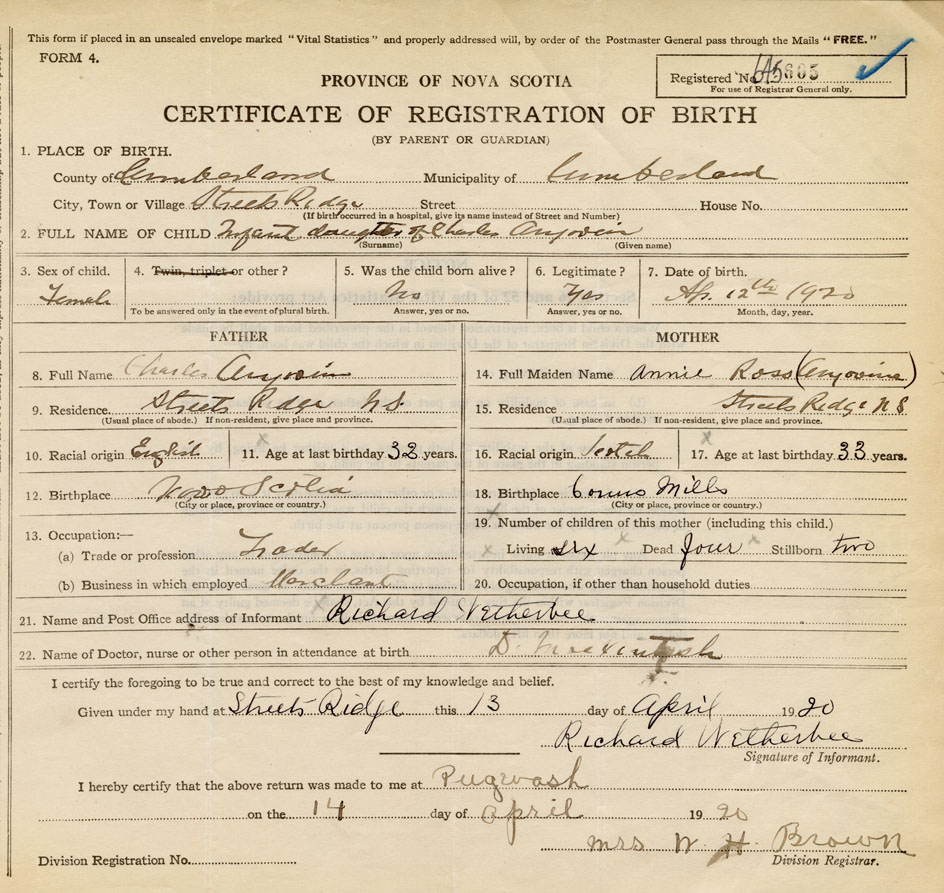 This form if placed in an unsealed envelope marked "Vital Statistics" and properly addressed will, by order of the Postmaster General pass through the Mails "FREE."
FORM 4.
PROVINCE OF NOVA SCOTIA
Registered No.
For use of Registrar General only.
CERTIFICATE OF REGISTRATION OF BIRTH
(BY PARENT OR GUARDIAN)
1. PLACE OF BIRTH.
County of Cumberland Municipality of Cumberland
City, Town or Village Streets Ridge Street House No.
(If birth occurred in a hospital, give its name instead of Street and Number)
2. FULL NAME OF CHILD Infant daughter of Charles
(Surname) (Given name)
3. Sex of child. 4. Twin, triplet or other? 5. Was the child born alive? 6. Legitimate? 7. Date of birth.
Female No Yes Ap. 12th 1920
To be answered only in the event of plural birth. Answer, yes or no. Answer, yes or no. Month, day, year.
FATHER MOTHER
8. Full Name Charles
14. Full Maiden Name Annie Ross
9. Residence. Streets Ridge N.S.
(Usual place of abode.) If non-resident, give place and province.
15. Residence Streets Ridge N S
(Usual place of abode.) If non-resident, give place and province.
10. Racial origin English 11. Age at last birthday 32 years.
16. Racial origin Scotch 17. Age at last birthday 33 years.
12. Birthplace Nova Scotia
(City or place, province or country.)
18. Birthplace Conns Mills
(City or place, province or country.)
13. Occupation:—
(a) Trade or profession Trader
(b) Business in which employed Merchant
19. Number of children of this mother (including this child.)
Living six Dead four Stillborn two
20. Occupation, if other than household duties
21. Name and Post Office address of Informant Richard Wetherbee
22. Name of Doctor, nurse or other person in attendance at birth D. Mackintosh
I certify the foregoing to be true and correct to the best of my knowledge and belief.
Given under my hand at Streets Ridge this 13 day of April 1920
Richard Wetherbee
Signature of Informant.
I hereby certify that the above return was made to me at Pugwash
on the 14 day of April 1920
Mrs W H Brown
Division Registration No. Division Registrar.